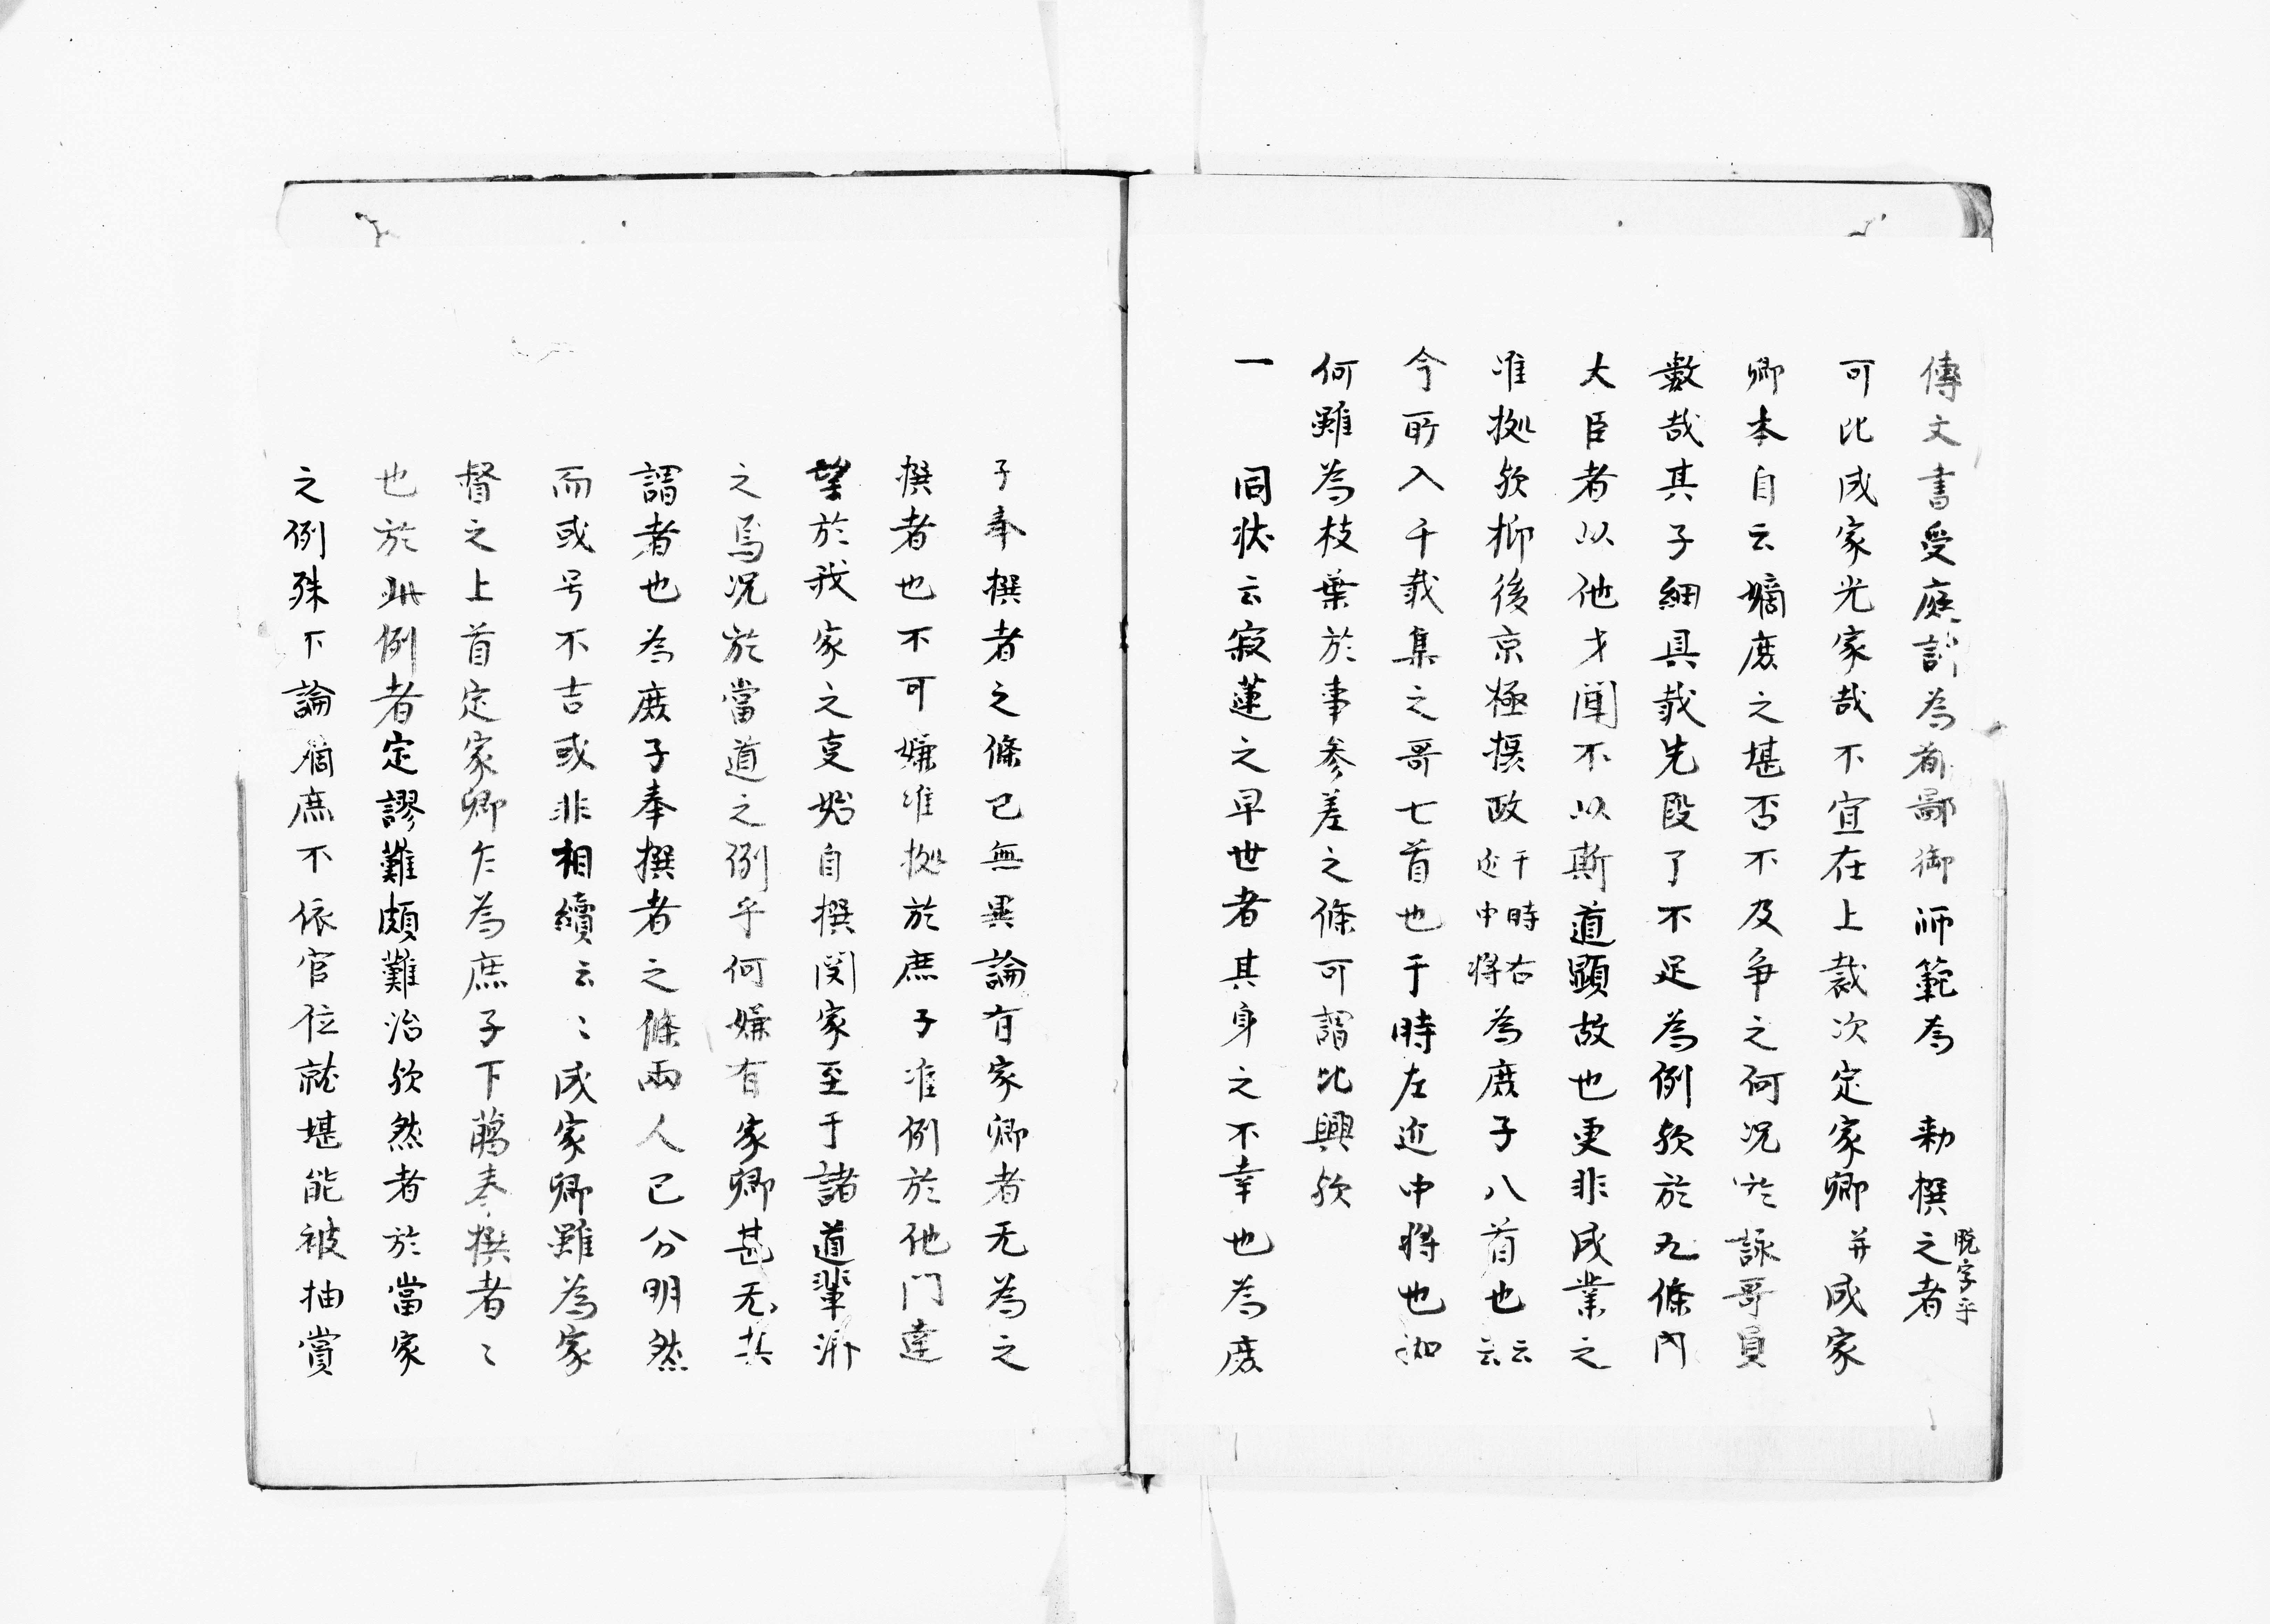 傳文書受庭訓為都鄙御師範為　勅撰之者
脱字乎
可比成家光家哉不宜在上裁次定家卿并成家
卿本自云嫡庶之堪否不及爭之何况於詠哥員
數哉其子細具載先段了不足為例欤於九條內
大臣者以他才聞不以斯道顯故也更非成業之
准拠欤抑後京極摂政于時右近中将為庶子八首也云云
今所入千載集之哥七首也于時左近中将也
何雖為枝葉於事参差之條可謂比興欤
一　同状云寂蓮之早世者其身之不幸也為庶
子奉撰者之條已無異論有家卿者无為之
撰者也不可嫌准拠於庶子准例於他門達
望於我家之支始自撰関家至于諸道輩
之焉况於當道之例乎何嫌有家卿甚无其
謂者也為庶子奉撰者之條兩人已分明然
而或号不吉或非相續云〻成家卿雖為家
督之上首定家卿乍為庶子下﨟奉撰者〻
也於此例者定謬難頗難治欤然者於當家
之例殊不論嫡庶不依官位就堪能被抽賞